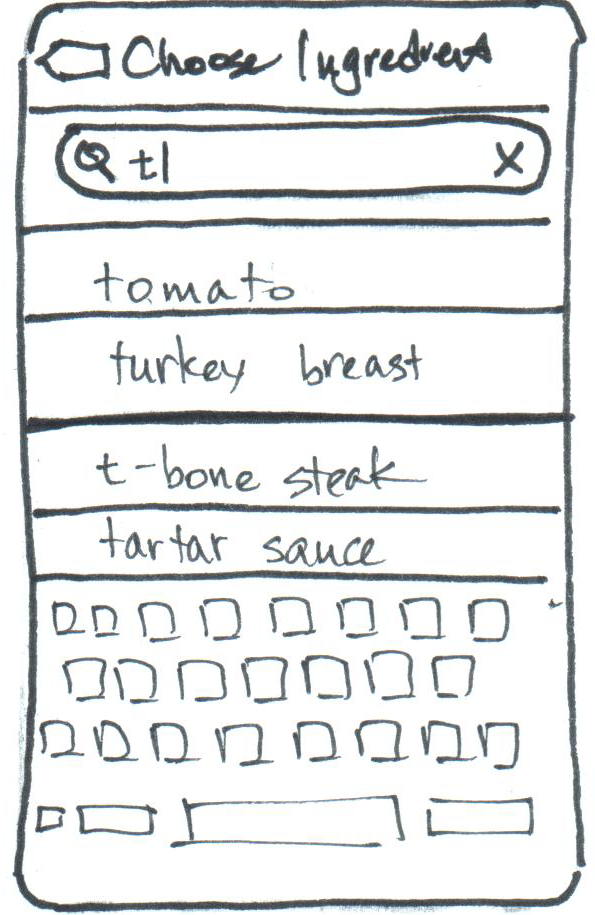 Choose Ingredient
t| X
tomato
turkey breast
t-bone steak
tartar sauce